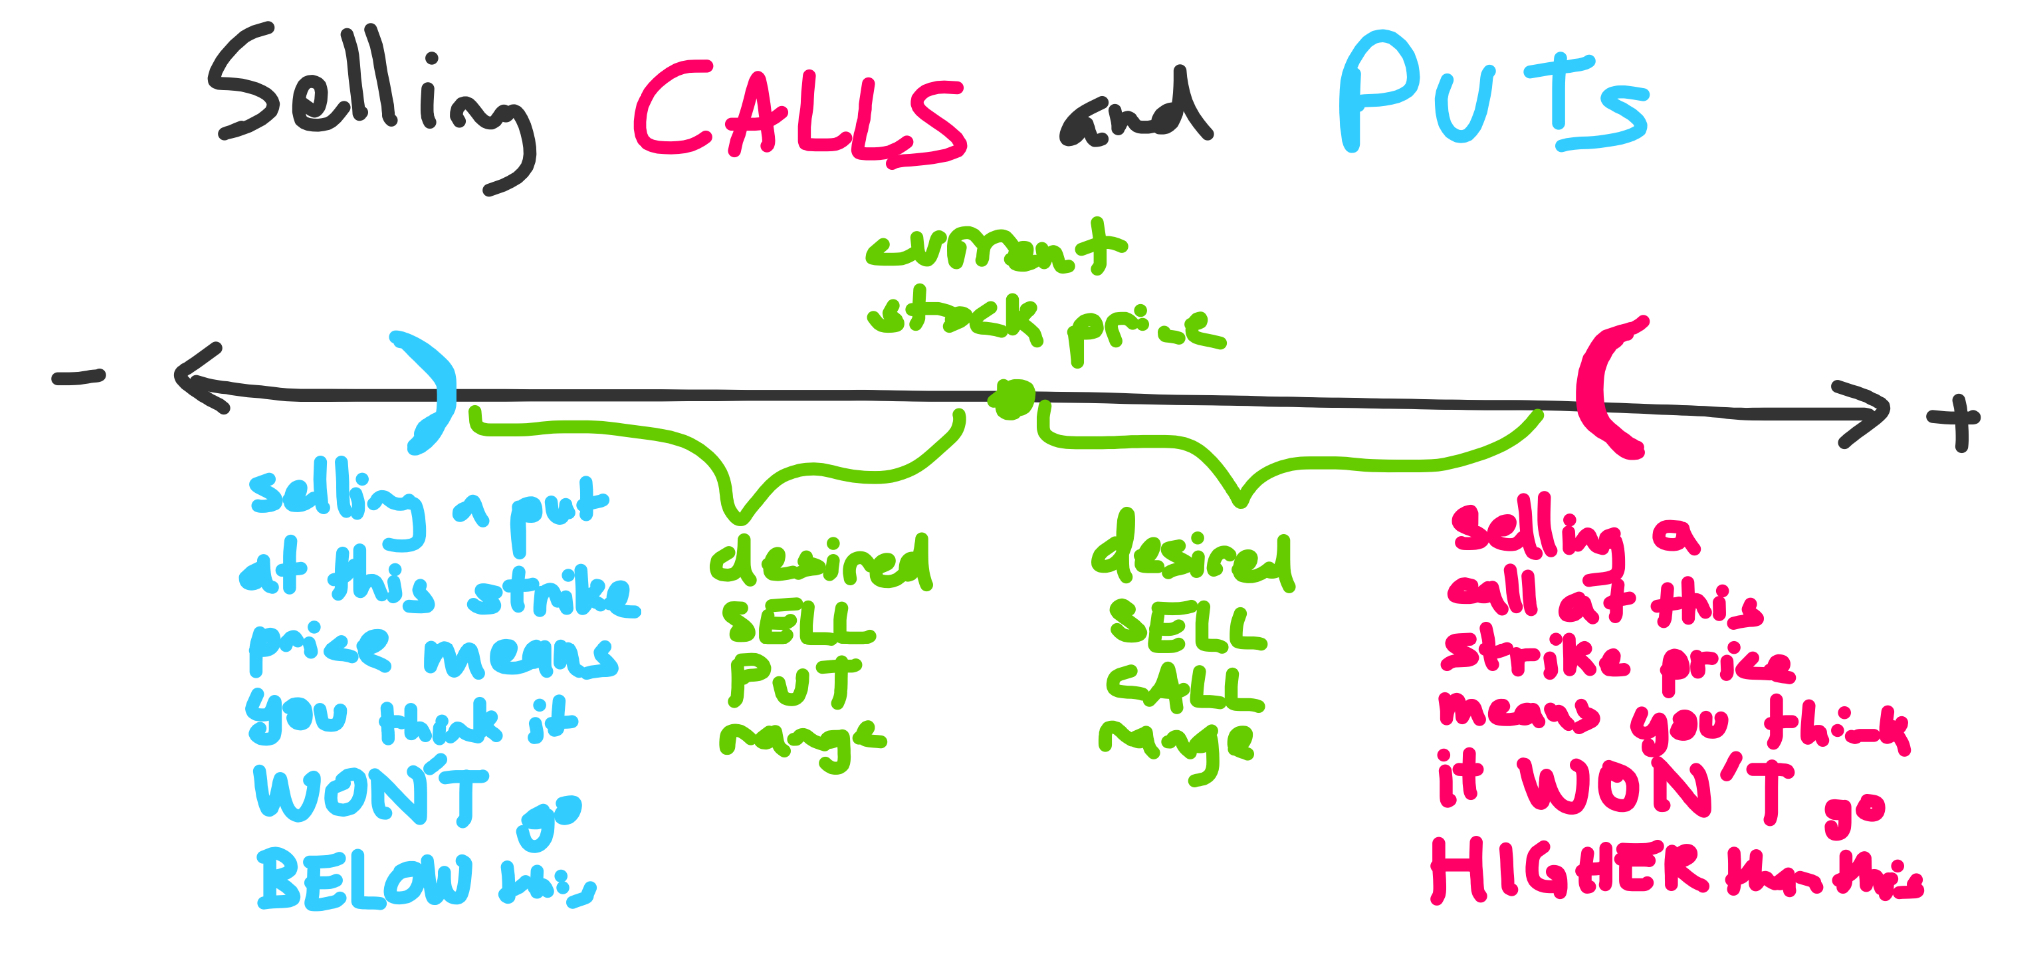 Selling CALLS and PUTS
current
stock price
-
+
selling a put
at this strike
price means
you think it
WON'T go
BELOW this
desired
SELL
PUT
range
desired
SELL
CALL
range
selling a
call at this
strike price
means you think
it WON'T go
HIGHER than this